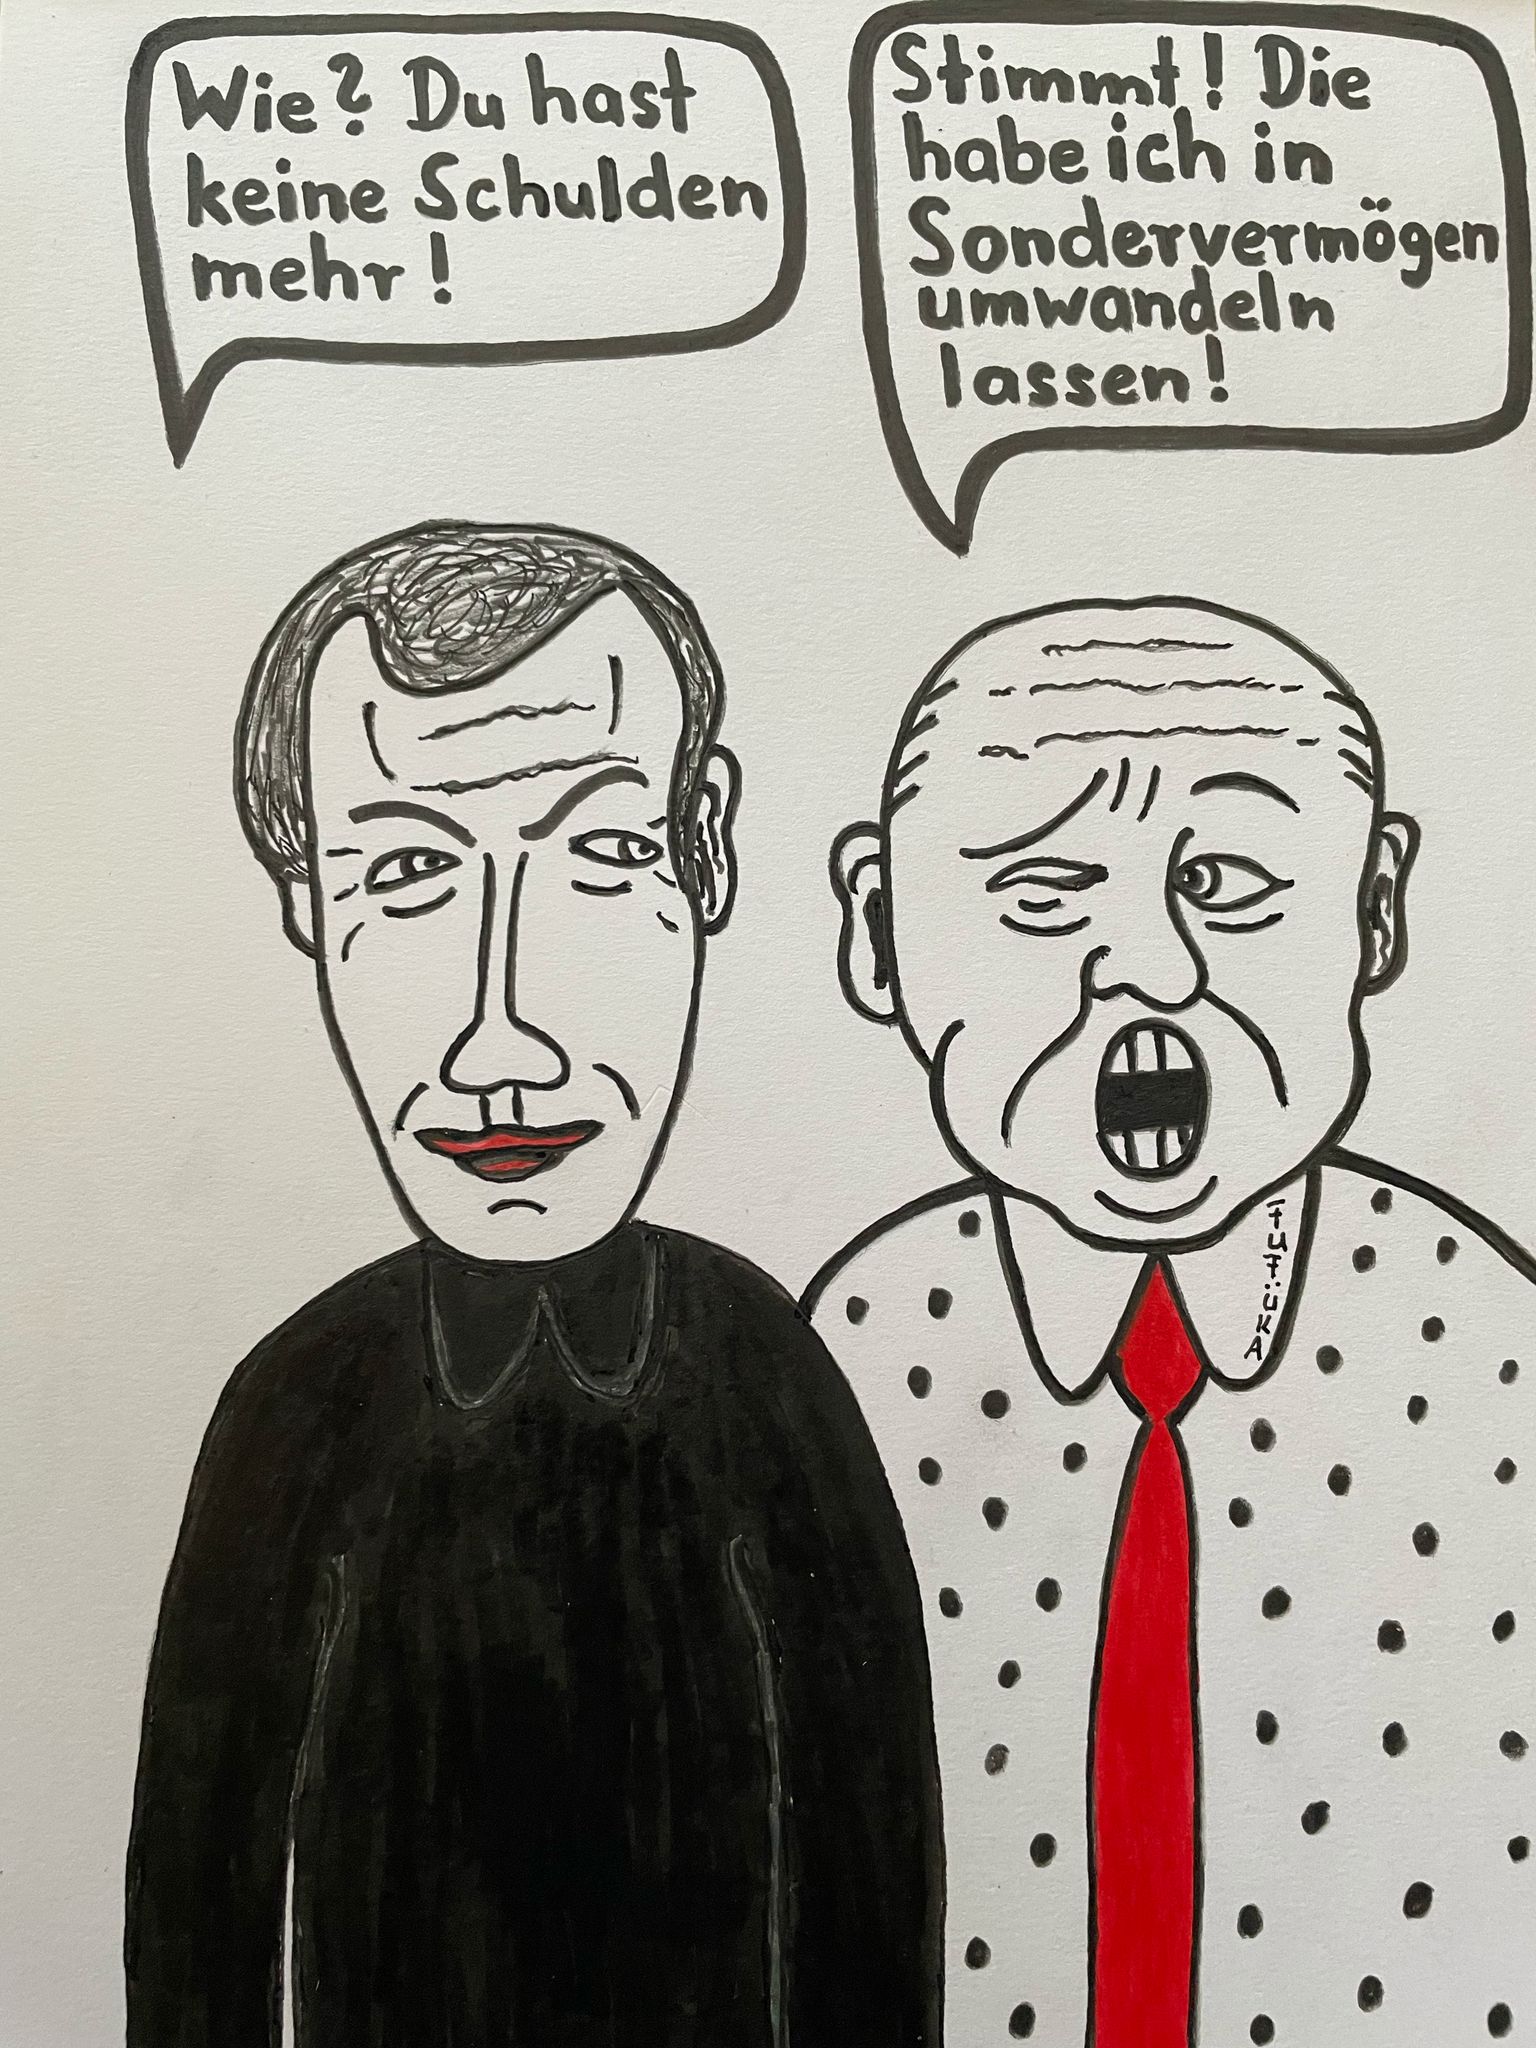 Wie? Du hast
keine Schulden
mehr!
Stimmt! Die
habe ich in
Sondervermögen
umwandeln
lassen!